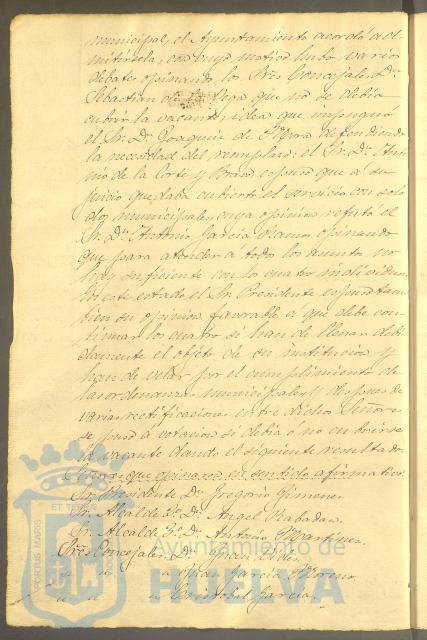 municipal, el Ayuntamiento acordó ad
mitirsela, con cuyo motivo hubo varios
debates opinando los Sres Concejales Dn
Sebastian de la Vega que no se debia
cubrir la vacante, idea que impugnó
el Sr. Dn Joaquin de Mora defendiendo
la necesidad del remplazo: el Sr. Dn Anto
nio de la Corte y Bravo espuso que a su
juicio quedaba cubierto el servicio con solo
dos municipales, cuya opinion refutó el
Sr. Dn Antonio Garcia Ramos opinando
que para atender a todos los asuntos no
hay suficiente con los cuatro individuos.
En este estado el Sr. Presidente espuso tam
bien su opinion favorable a que debe con
tinuar los cuatro si han de llenar debi
damente el objeto de su institucion y
han de velar por el cumplimiento de
las ordenanzas municipales, y despues de
varias rectificaciones entre dichos Señores
se puso a votacion si debia ó no cubrirse
la vacante dando el siguiente resultado.
Señores que opinaron en sentido afirmativo.
Sr. Presidente Dn Gregorio Gimenez
Sr. Alcalde 1o Dn Angel Rabadan
Sr. Alcalde 2o Dn Antonio Martinez
Sres Concejales Dn Juan
" " " Juan Garcia Moreno
" " " Cristobal Garcia
PORTUS MARIS ET TERRAE
Ayuntamiento de
HUELVA